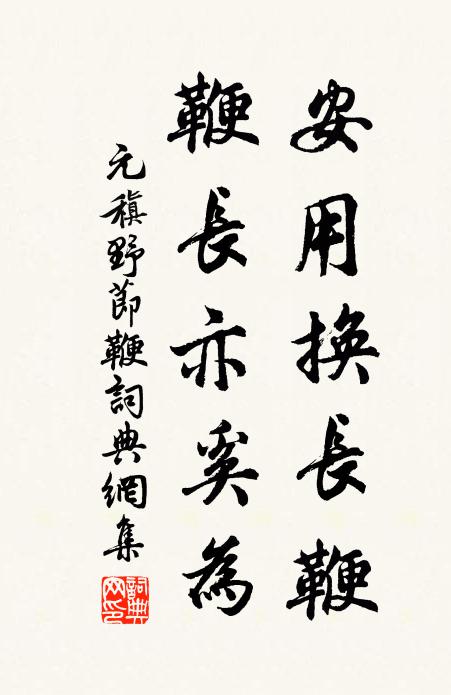 安用換長鞭
鞭長亦奚為
元稹野節鞭詞典網集
詞典網印